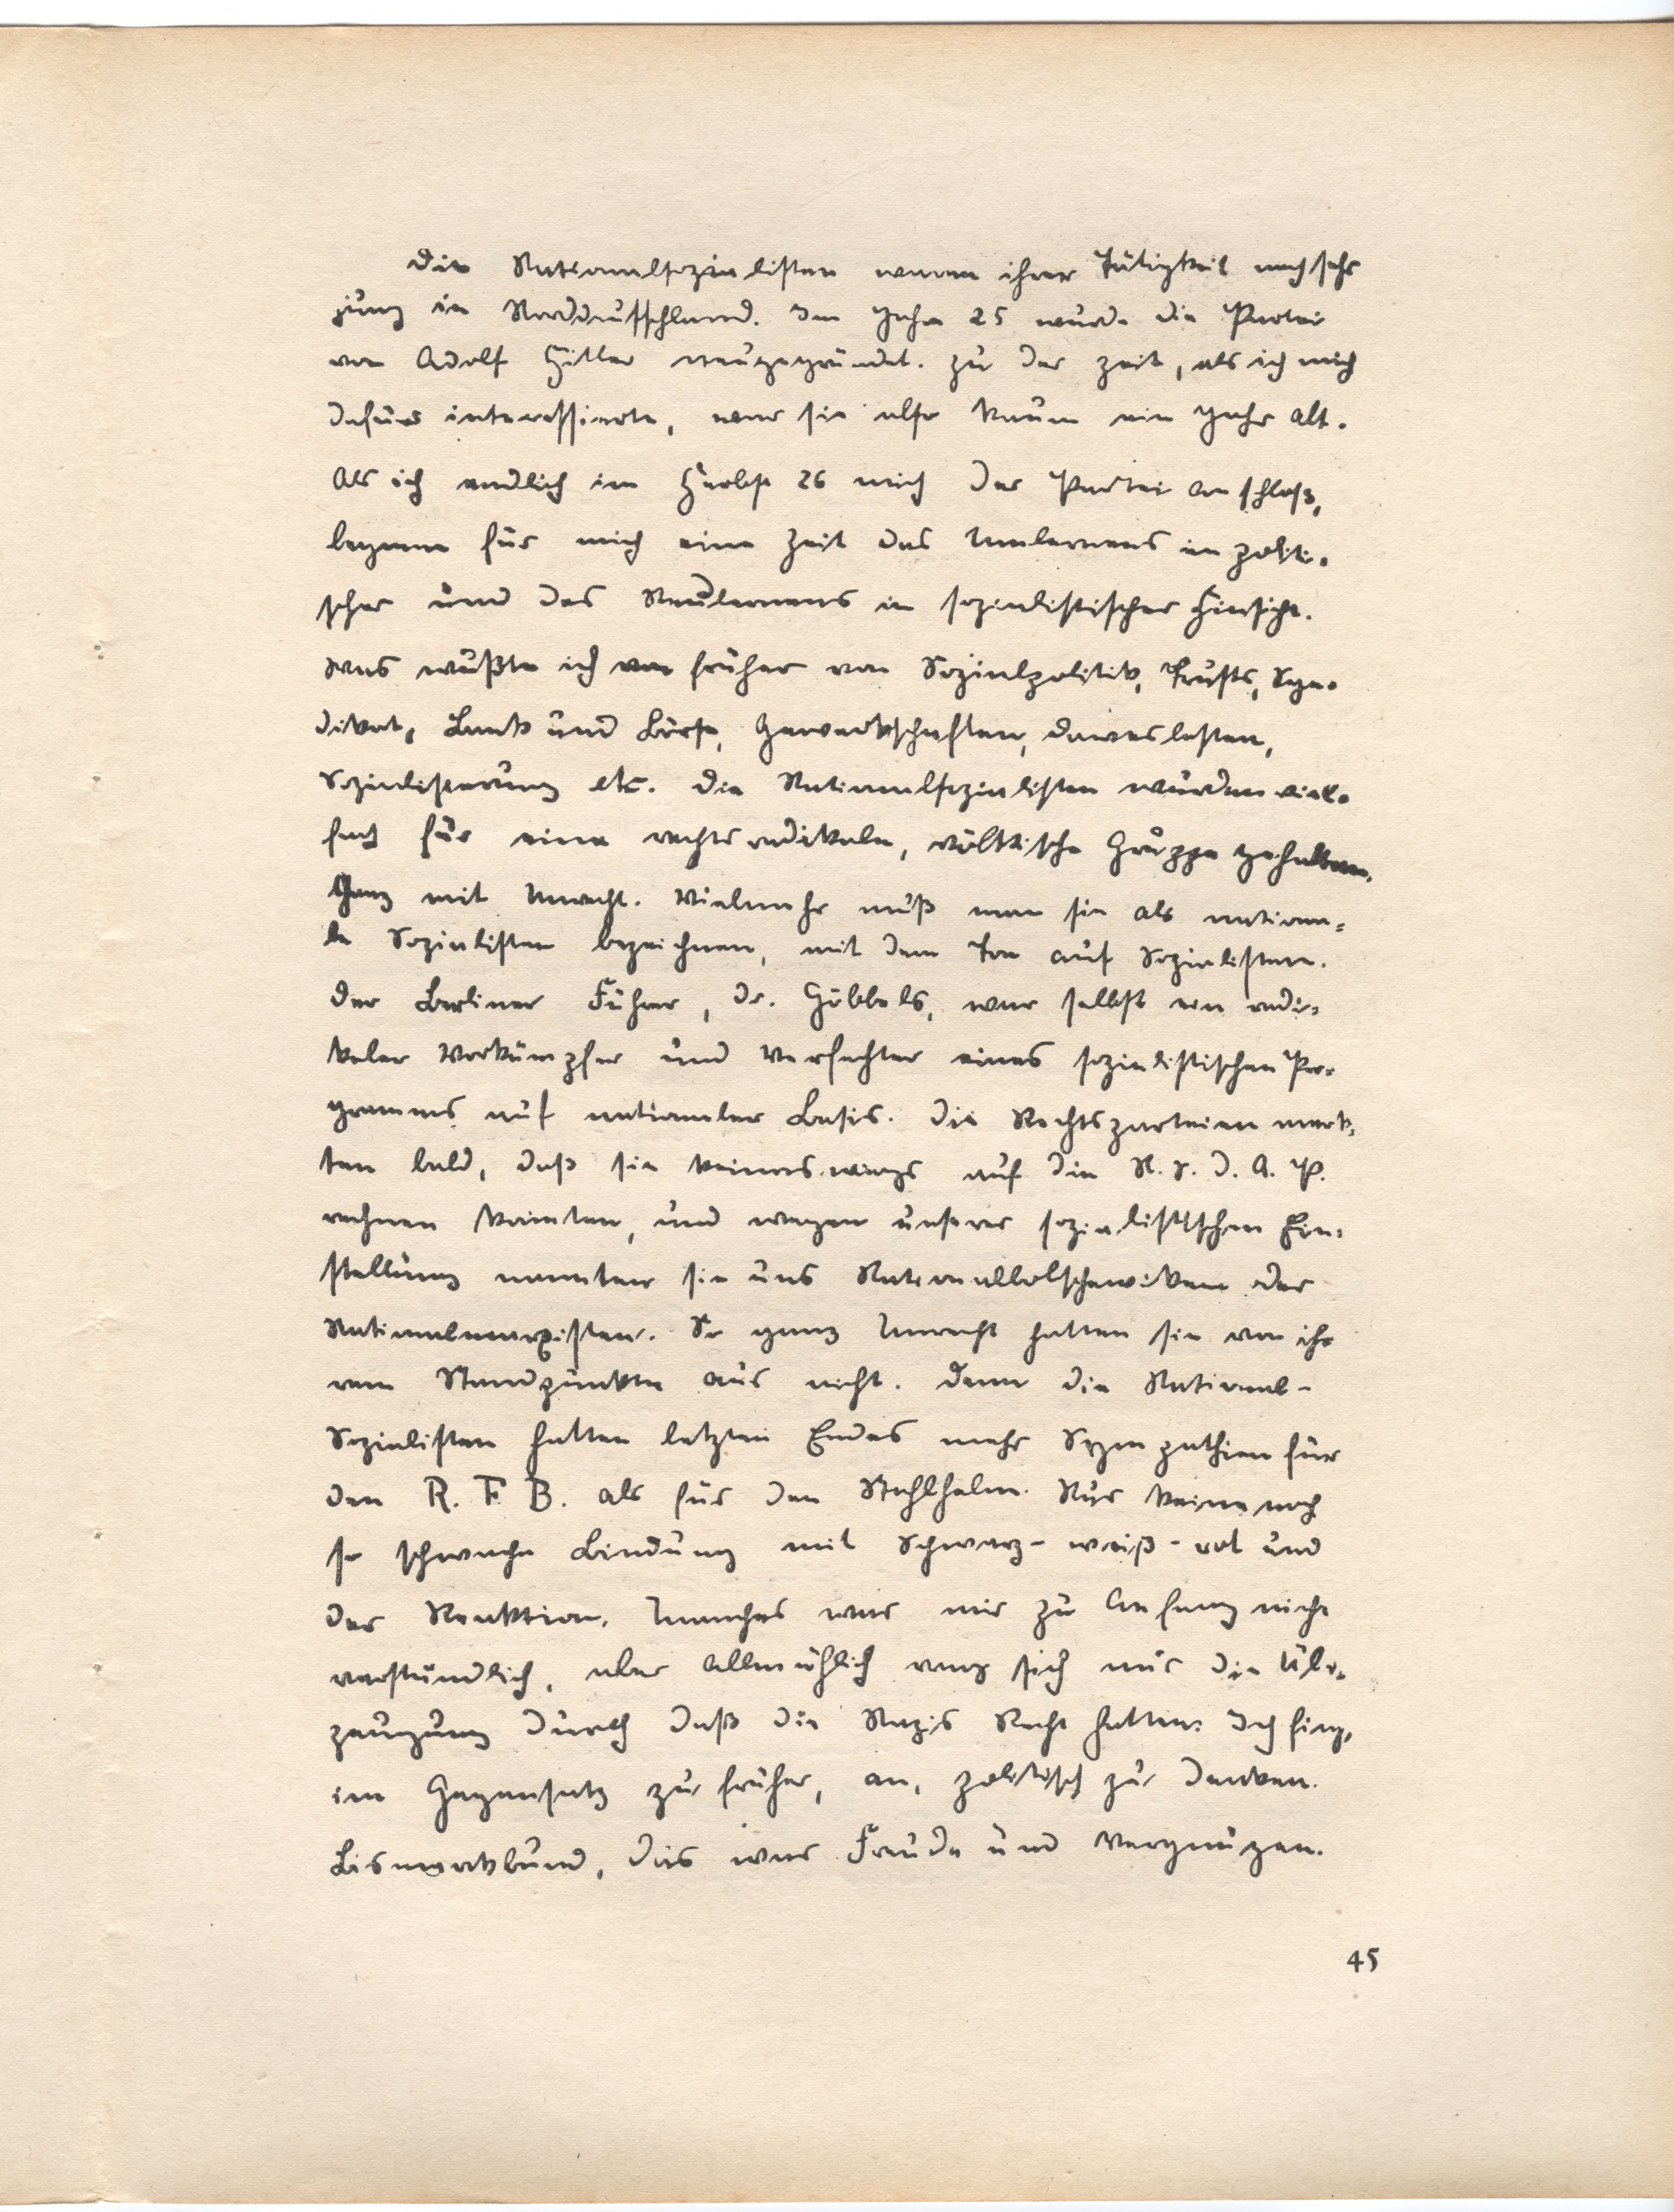 Die Nationalsozialisten waren ihrer Tätigkeit noch sehr
jung in Norddeutschland. Im Jahre 25 wurde die Partei
von Adolf Hitler neugegründet. Zu der Zeit, als ich mich
dafür interessierte, war sie also kaum ein Jahr alt.
Als ich endlich im Herbst 26 mich der Partei anschloß,
begann für mich eine Zeit des Umlernens in politi-
scher und des Neulernens in sozialistischer Hinsicht.
Was wußte ich von früher von Sozialpolitik, Trusts, Syn-
dikat, Bank und Börse, Gewerkschaften, Daweslasten,
Sozialisierung etc. Die Nationalsozialisten wurden viel-
fach für eine rechtsradikale, völkische Gruppe gehalten.
Ganz mit Unrecht. Vielmehr muß man sie als nationa-
le Sozialisten bezeichnen, mit dem Ton auf Sozialisten.
Der Berliner Führer, Dr. Göbbels, war selbst ein radi-
kaler Vorkämpfer und Verfechter eines sozialistischen Pro-
gramms auf nationaler Basis. Die Rechtsparteien merk-
ten bald, daß sie keineswegs auf die N. S. D. A. P.
rechnen konnten, und wegen unserer sozialistischen Ein-
stellung nannten sie uns Nationalbolschewiken oder
Nationalmarxisten. So ganz Unrecht hatten sie von ih-
rem Standpunkte aus nicht. Denn die National-
Sozialisten hatten letzten Endes mehr Sympathien für
den R. F. B. als für den Stahlhelm. Nur keine noch
so schwache Bindung mit Schwarz-weiß-rot und
der Reaktion. Manches war mir zu Anfang nicht
verständlich, aber allmählich rang sich nur die Über-
zeugung durch daß die Nazis Recht hatten. Ich fing,
im Gegensatz zu früher, an, politisch zu denken.
Bismarckbund, das war Freude und Vergnügen.
45